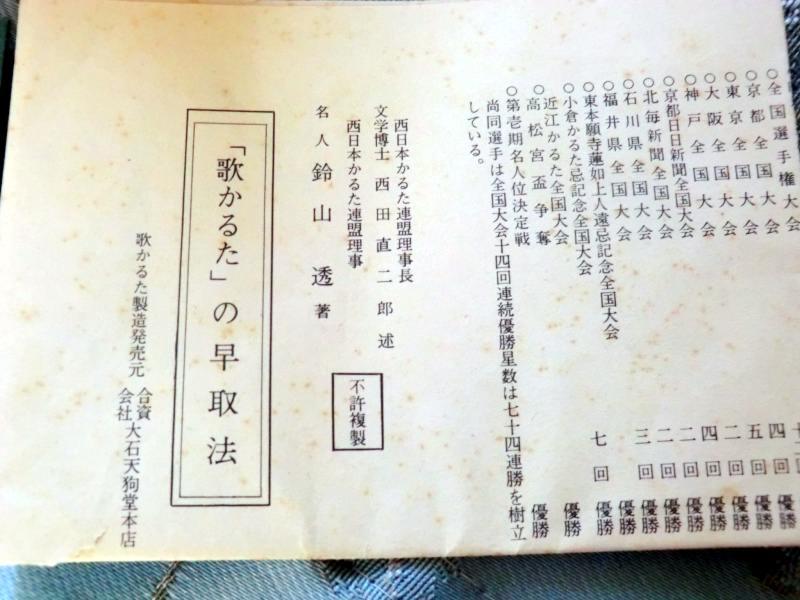 ○全国選手権大会
○京都全国大会
○東京全国大会 四回優勝
○大阪全国大会 五回優勝
○神戸全国大会 二回優勝
○京都日日新聞全国大会 四回優勝
○北毎新聞全国大会 二回優勝
○石川県全国大会 二回優勝
○福井県全国大会 三回優勝
○東本願寺蓮如上人遠忌記念全国大会 優勝
○小倉かるた忌記念全国大会
近江かるた全国大会 七回優勝
○高松宮盃争奪 優勝
○第壱期名人位決定戦 優勝
尚同選手は全国大会十四回連続優勝星数は七十四連勝を樹立
している。
西日本かるた連盟理事長
文学博士 西田直二郎 述
西日本かるた連盟理事
名人 鈴山 透 著
不許複製
「歌かるた」の早取法
歌かるた製造発売元 合資会社 大石天狗堂本店